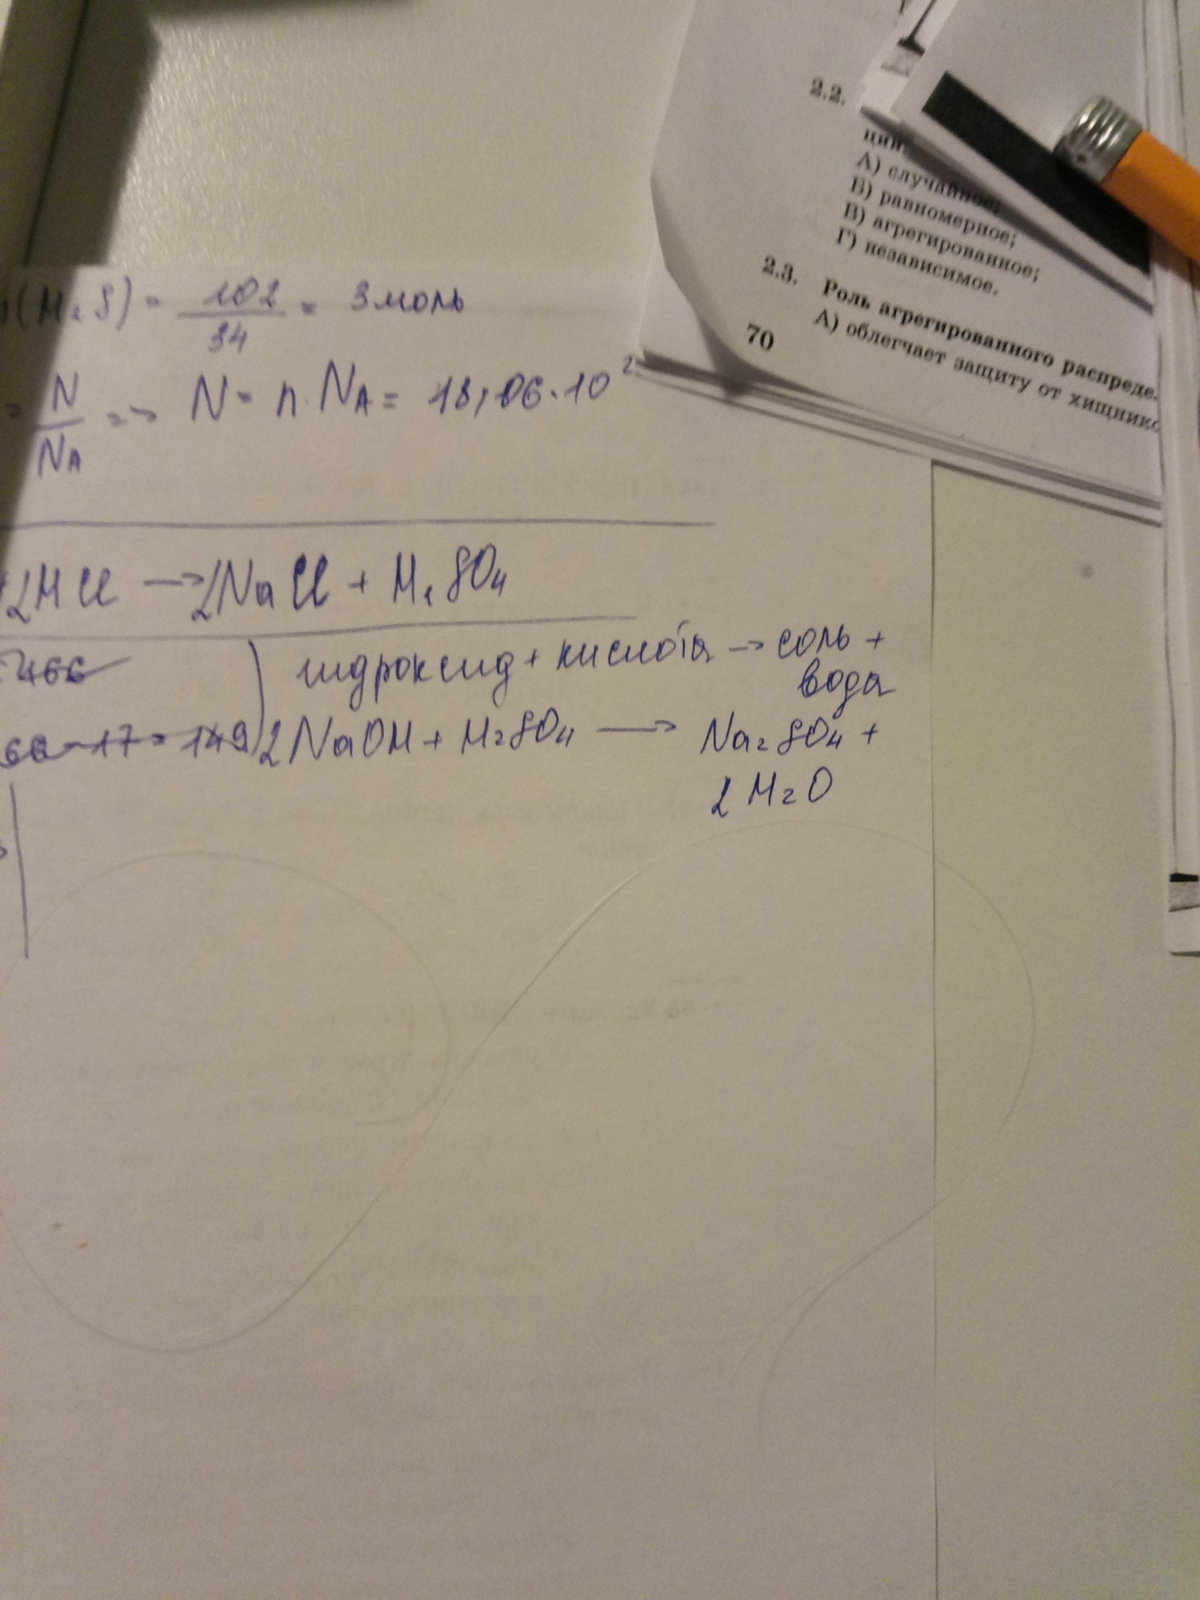 2.2.
ции
А) случайное;
Б) равномерное;
В) агрегированное;
Г) независимое.
2.3. Роль агрегированного распреде
А) облегчает защиту от хищнико
70
(H₂S) = 102/34 = 3 моль
= N/NA => N = n · NA = 18,06 · 10²
2HCl → 2NaCl + H₂SO₄
466
66 - 17 = 149
гидроксид + кислота → соль +
вода
2NaOH + H₂SO₄ → Na₂SO₄ +
2H₂O